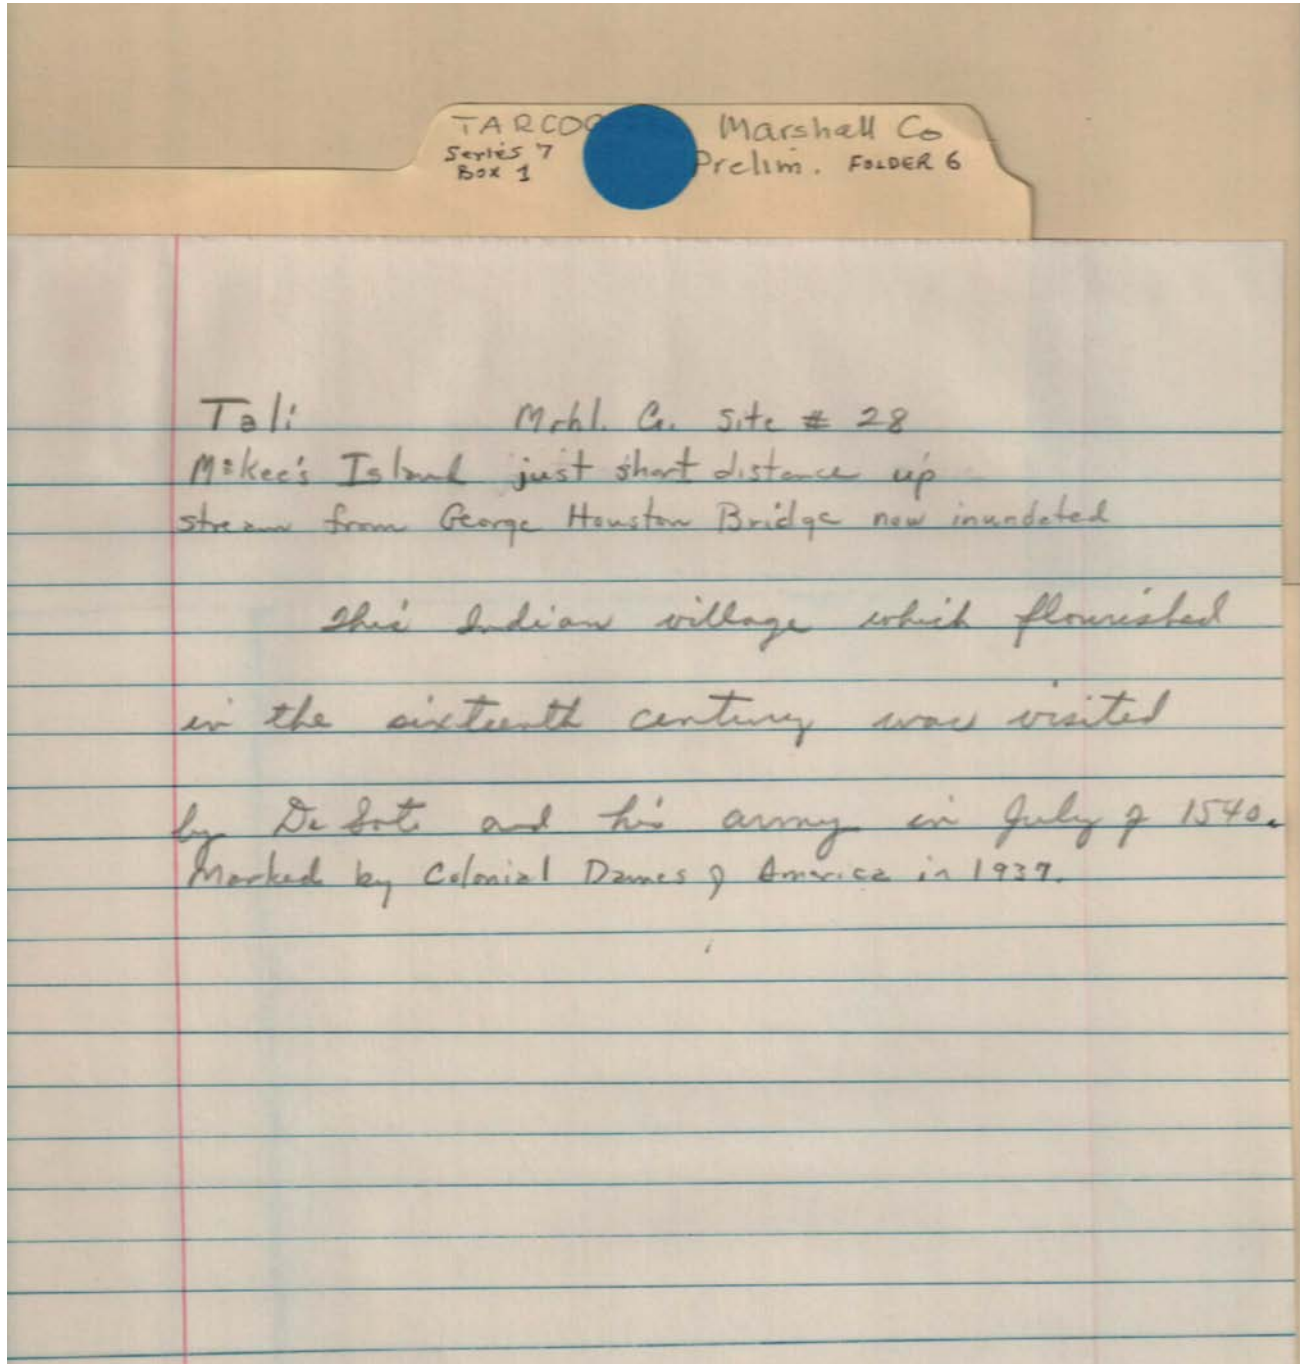 TARCOG
Marshall Co
Series 7
Prelim. FOLDER 6
Box 1
Tali Mrhl. Co. Site # 28
McKee's Island just short distance up
stream from George Houston Bridge now inundated
This Indian village which flourished
in the sixteenth century was visited
by De Soto and his army in July of 1540.
Marked by Colonial Dames of America in 1937.